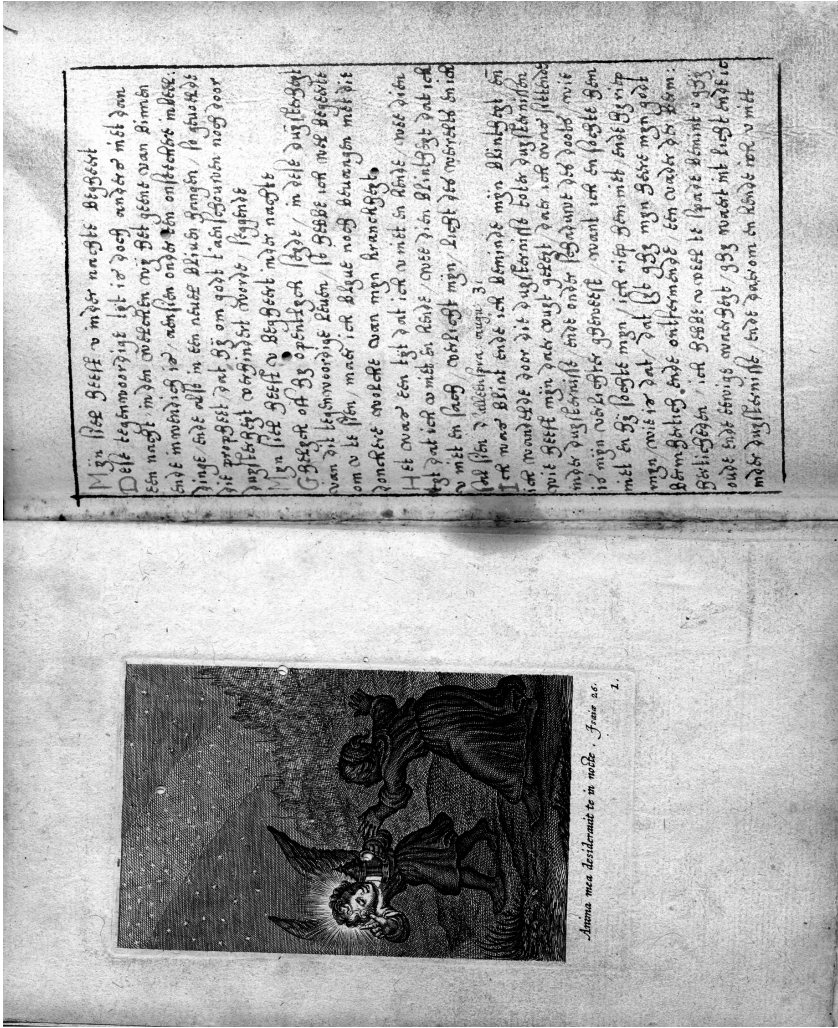 Anima mea desiderauit te in nocte. Isaiæ 26.
1.
Mijn siel heeft v inder nachte begheert
Dese tegenwoordige tijt is doch anders niet dan
een nacht in den welcken wij het geene van binnen
ende inwendich is aensien onder een onsekere
dinge ende alst in een neuel bliuen hangen, so getuicht
die propheet dat hij om godt t'aenschouwen noch door
duijsterheijt verhindert wordt, seggende
Mijn siel heeft v begheert inder nachte
Ghelijck oft hij opentlijck seijde, in dese duijsterheijt
van dit tegenwoordige leuen, so hebbe ick wel begeerte
om v te sien, maer ick blijue noch beuangen met die
donckere wolcke van mijn kranckheijt.
Het was een tijt dat ick v niet en kende, wee dien
tijt dat ick v niet en kende, wee dien blintheijt dat ick
v niet en sach, verlicht mijn, licht des werelts en ick
sal sien augu 31.
Ick was blint ende ick beminde mijn blintheijt en
ick wandelde door die duijsternisse tot duijsternissen
wie heeft mijn daer wijt geleijt daer ick was sittende
inder duijsternisse ende onder schaduwe des doots wie
is mijn verlichter gheweest, want ick en sochte hem
niet en hij sochte mijn, ick riep hem niet ende hij riep
mijn, wie is dat, dat sijt ghij mijn heere mijn godt
bermhertich ende ontfermende, een vader der berm-
herticheden, ick hebbe v veel te spade bemint o ghij
oude ende eewige waerheijt ghij waert mit licht ende ic
inder duijsternisse, ende daerom en kende ick v niet